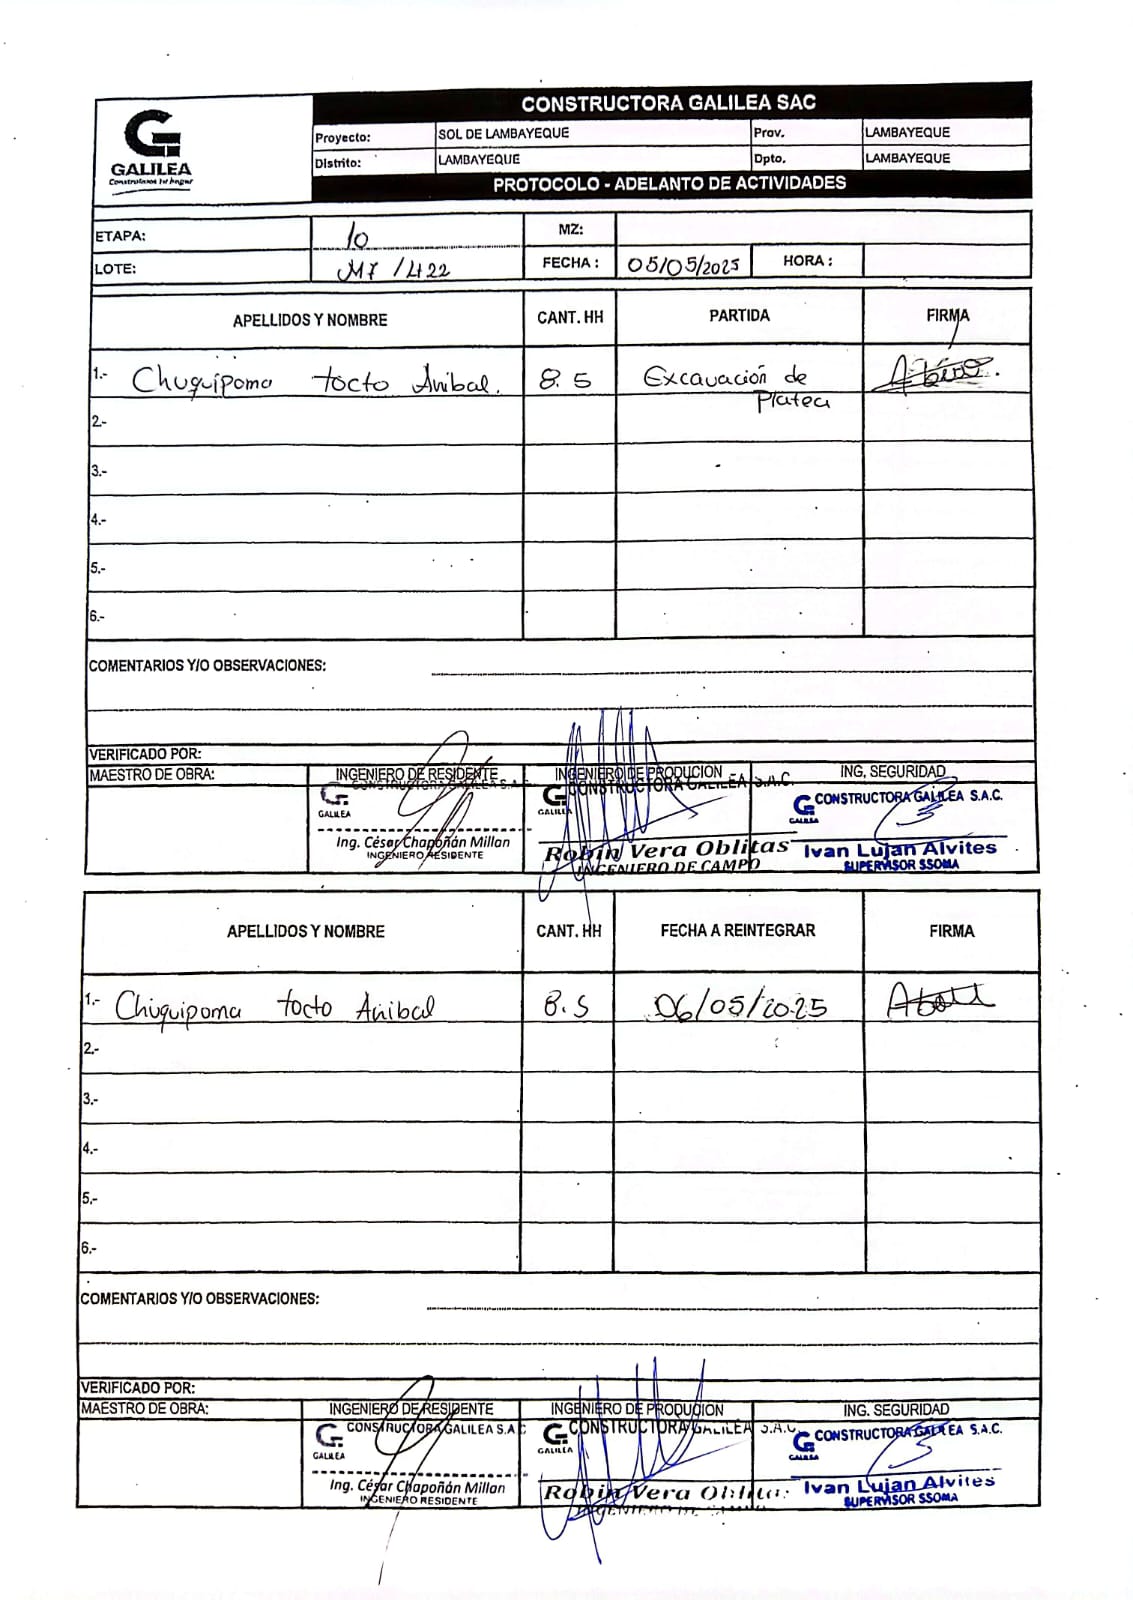 GALILEA
Construimos tu hogar
CONSTRUCTORA GALILEA SAC
Proyecto: SOL DE LAMBAYEQUE Prov. LAMBAYEQUE
Distrito: LAMBAYEQUE Dpto. LAMBAYEQUE
PROTOCOLO - ADELANTO DE ACTIVIDADES
ETAPA: 10 MZ:
LOTE: M7 / L122 FECHA : 05/05/2025 HORA :
APELLIDOS Y NOMBRE CANT. HH PARTIDA FIRMA
1.- Chuquipoma tocto Anibal. 8.5 Excavación de
Platea
2.-
3.-
4.-
5.-
6.-
COMENTARIOS Y/O OBSERVACIONES:
VERIFICADO POR:
MAESTRO DE OBRA: INGENIERO DE RESIDENTE INGENIERO DE PRODUCION ING. SEGURIDAD
CONSTRUCTORA GALILEA S.A.C. CONSTRUCTORA GALILEA S.A.C. CONSTRUCTORA GALILEA S.A.C.
GALILEA GALILEA GALILEA
Ing. César Chapoñán Millan Robin Vera Oblitas Ivan Lujan Alvites
INGENIERO RESIDENTE INGENIERO DE CAMPO SUPERVISOR SSOMA
APELLIDOS Y NOMBRE CANT. HH FECHA A REINTEGRAR FIRMA
1.- Chuquipoma tocto Anibal 8.5 06/05/2025
2.-
3.-
4.-
5.-
6.-
COMENTARIOS Y/O OBSERVACIONES:
VERIFICADO POR:
MAESTRO DE OBRA: INGENIERO DE RESIDENTE INGENIERO DE PRODUCION ING. SEGURIDAD
CONSTRUCTORA GALILEA S.A.C. CONSTRUCTORA GALILEA S.A.C. CONSTRUCTORA GALILEA S.A.C.
GALILEA GALILEA GALILEA
Ing. César Chapoñán Millan Robin Vera Oblitas Ivan Lujan Alvites
INGENIERO RESIDENTE INGENIERO DE SUPERVISOR SSOMA